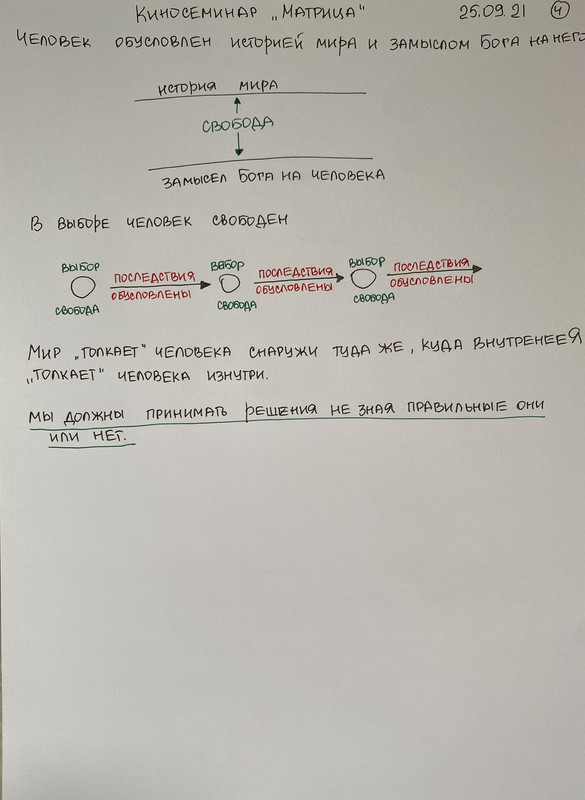 Киносеминар „Матрица“ 25.09.21 4
Человек обусловлен историей мира и замыслом Бога на него
история мира
свобода
замысел Бога на человека
В выборе человек свободен
выбор последствия выбор последствия выбор последствия
свобода обусловлены свобода обусловлены свобода обусловлены
Мир „толкает“ человека снаружи туда же, куда внутреннее Я
„толкает“ человека изнутри.
Мы должны принимать решения не зная правильные они
или нет.